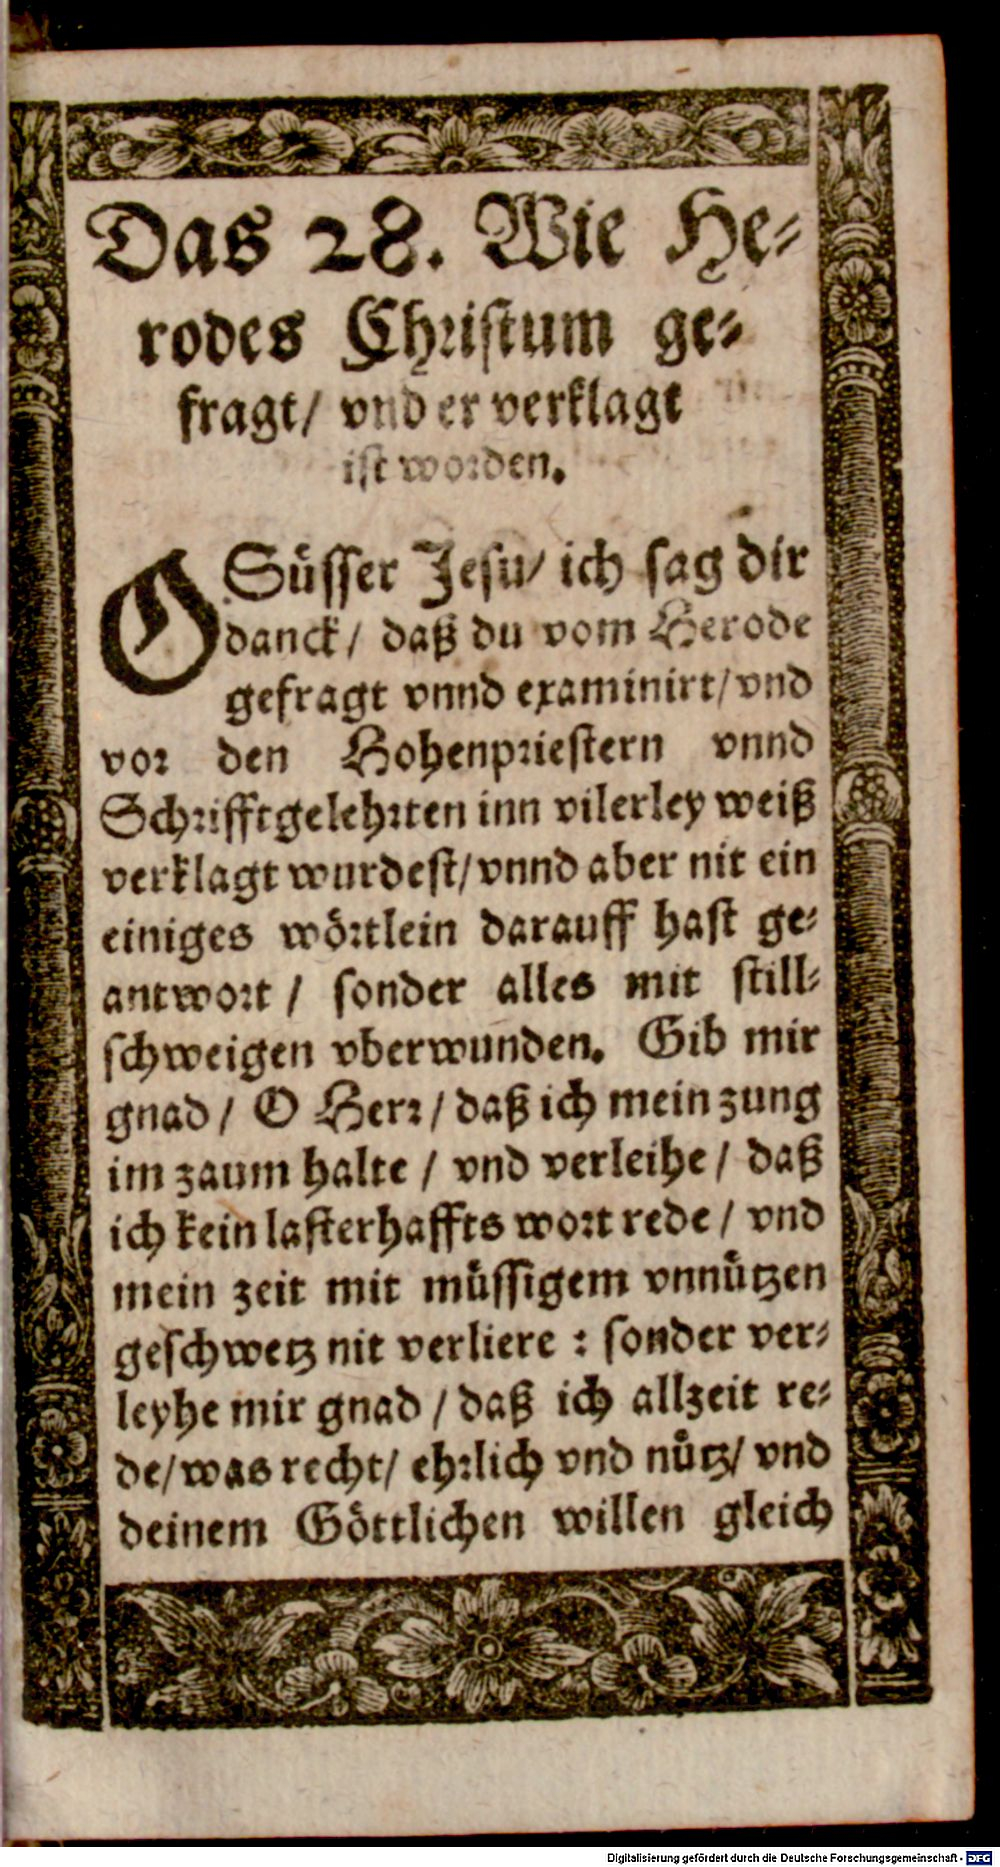 Das 28. Wie He-
rodes Christum ge-
fragt/ vnd er verklagt
ist worden.
O Süsser Jesu/ ich sag dir
danck/ daß du vom Herode
gefragt vnnd examinirt/ vnd
vor den Hohenpriestern vnnd
Schrifftgelehrten inn vilerley weiß
verklagt wurdest/ vnnd aber nit ein
einiges wörtlein darauff hast ge-
antwort / sonder alles mit still-
schweigen vberwunden. Gib mir
gnad / O Herr / daß ich mein zung
im zaum halte / vnd verleihe / daß
ich kein lasterhaffts wort rede / vnd
mein zeit mit müssigem vnnützen
geschwetz nit verliere : sonder ver-
leyhe mir gnad / daß ich allzeit re-
de/ was recht/ ehrlich vnd nütz/ vnd
deinem Göttlichen willen gleich
Digitalisierung gefördert durch die Deutsche Forschungsgemeinschaft - DFG